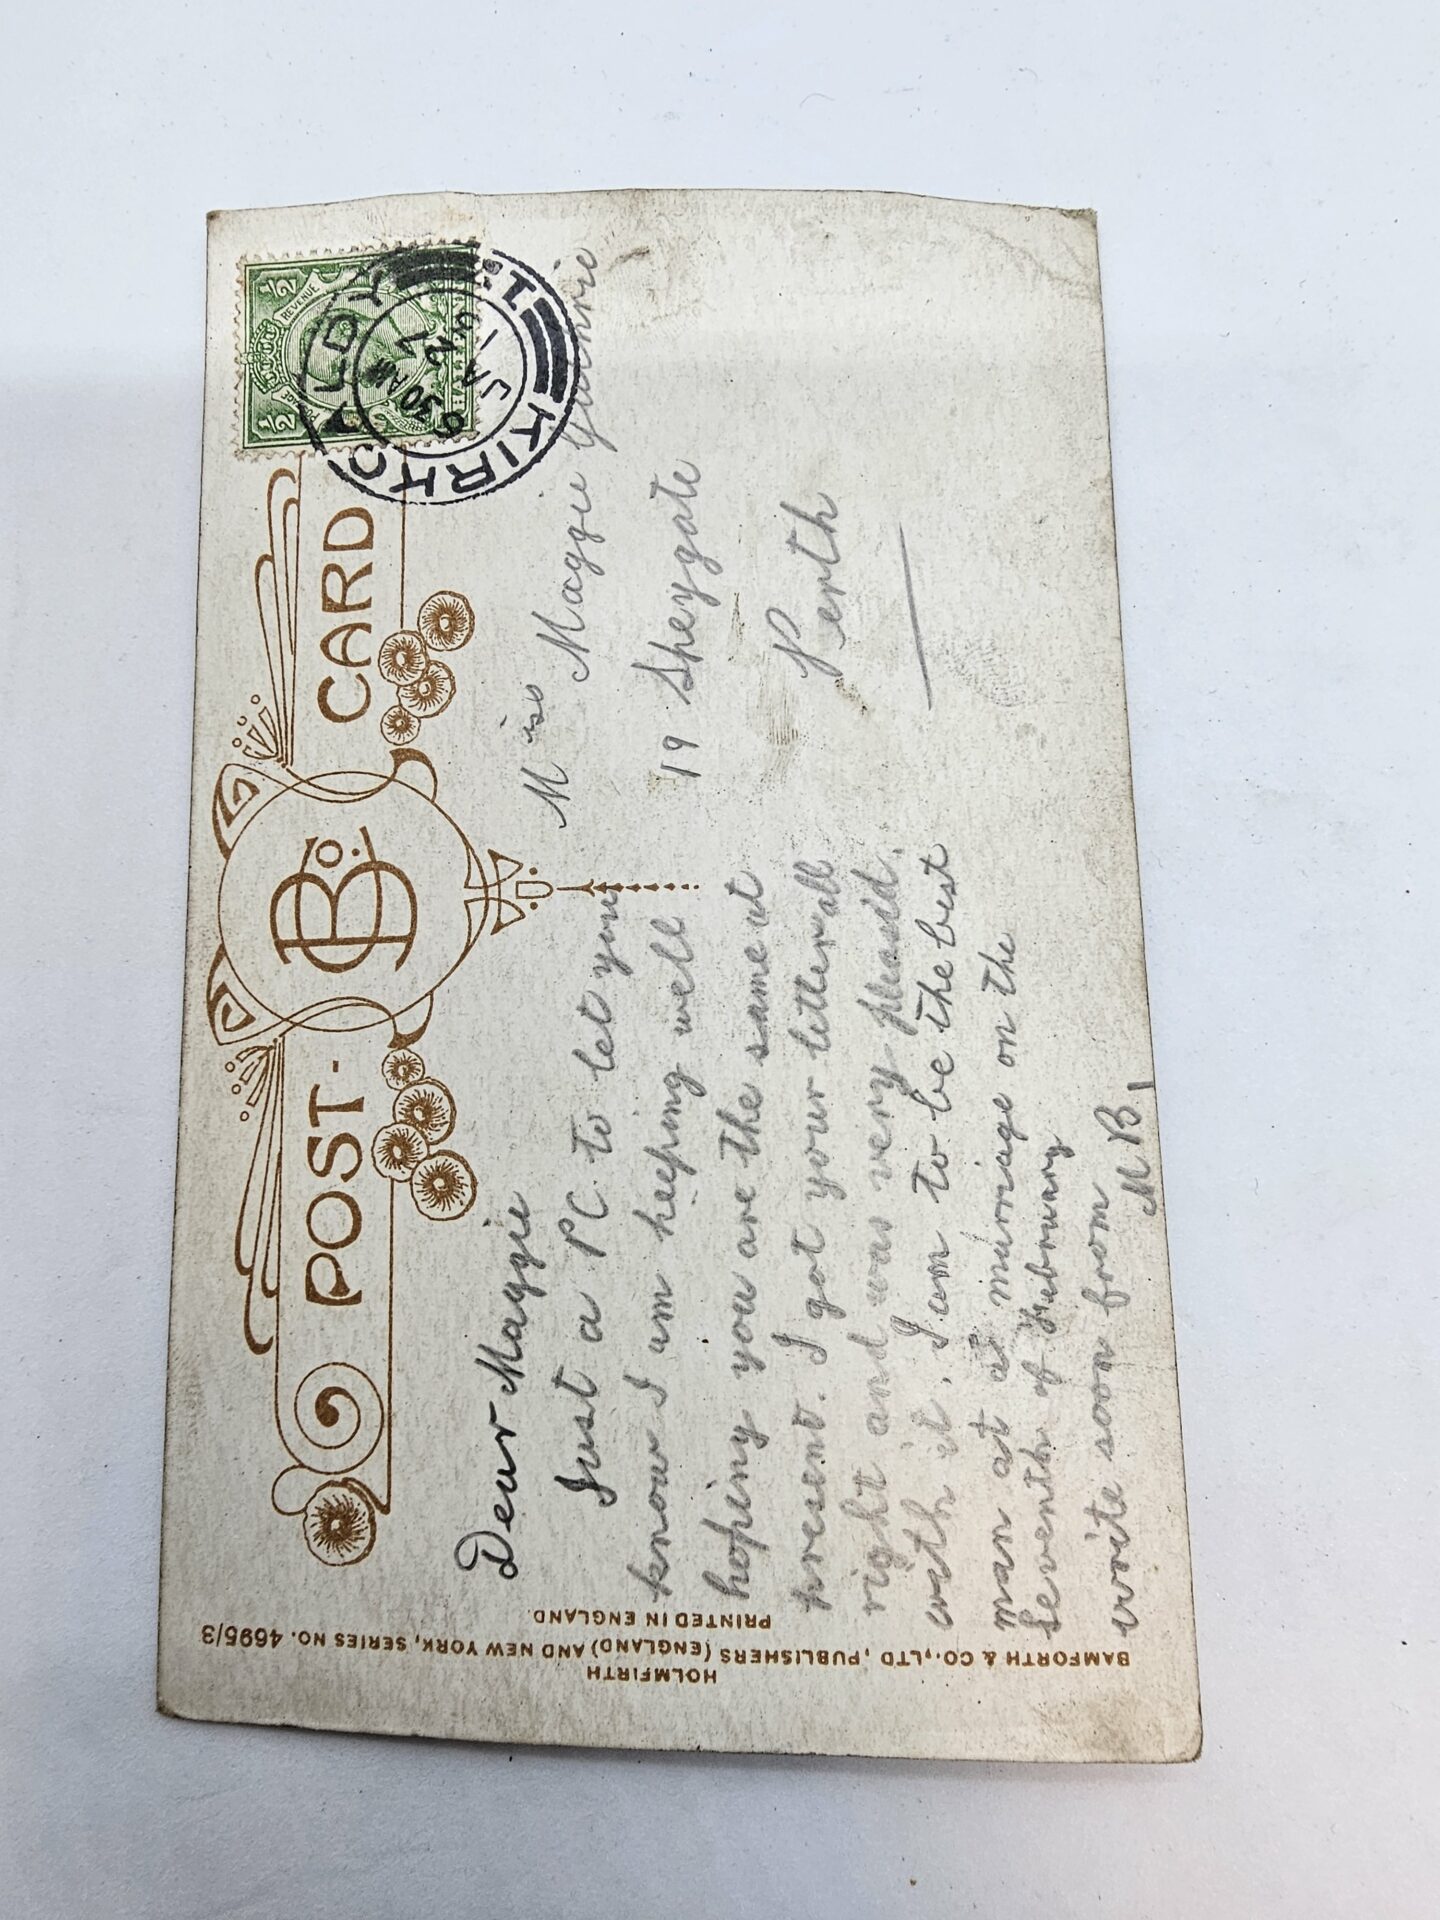 POST-CARD
B & Co.
½ ½
POSTAGE REVENUE
KIRKCALDY
9 30 AM
JA 1
Dear Maggie
Just a PC to let you
know I am keeping well
hoping you are the same at
present. I got your letter all
right and was very pleasd.
with it. I am to be the best
man at a murriage on the
Seventh of Februry
write soon from
M B
Miss Maggie Guthrie
19 Speygate
Perth
BAMFORTH & CO., LTD, PUBLISHERS (ENGLAND) AND NEW YORK, SERIES NO. 4695/3
HOLMFIRTH
PRINTED IN ENGLAND